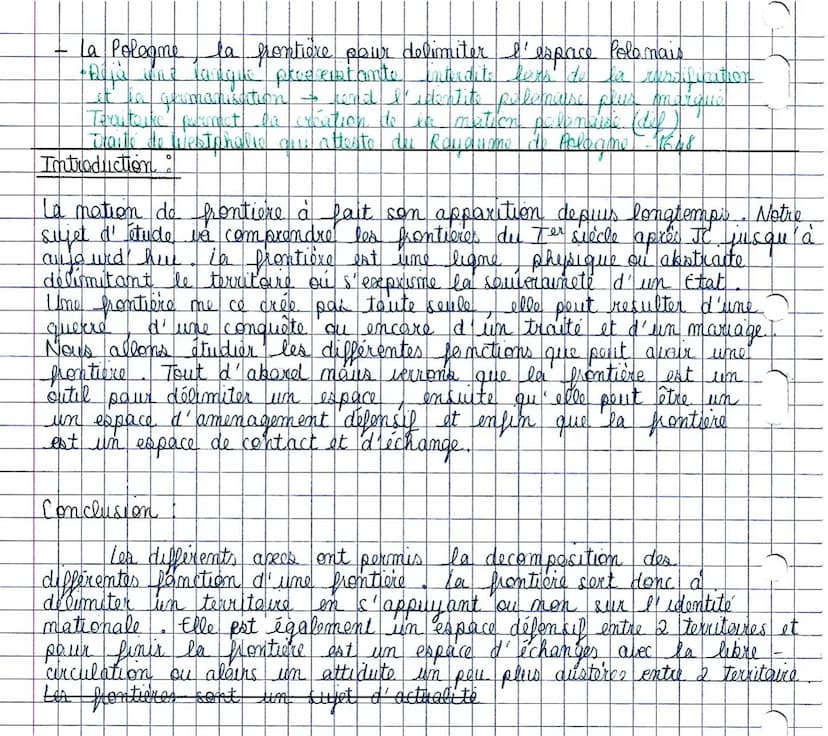 - La Pologne, la frontière pour delimiter l'espace Polonais
• Déjà une langue preexistante interdite lors de la russification
et la germanisation → rend l'identité polonaise plus marqué
Territoire permet la création de la nation polonaise (def)
Traité de Westphalie qui atteste du Royaume de Pologne - 1648
Introduction :
La notion de frontière à fait son apparition depuis longtemps. Notre
sujet d'étude va comprendre les frontières du Ier siècle après JC jusqu'à
aujourd'hui. La frontière est une ligne, physique ou abstraite
délimitant le territoire où s'exprime la souveraineté d'un Etat.
Une frontière ne ce crée pas toute seule, elle peut resulter d'une
guerre, d'une conquête ou encore d'un traité et d'un mariage.
Nous allons étudier les différentes fonctions que peut avoir une
frontière. Tout d'abord nous verrons que la frontière est un
outil pour délimiter un espace, ensuite qu'elle peut être un
un espace d'amenagement défensif et enfin que la frontière
est un espace de contact et d'échange.
Conclusion :
Les différents axes ont permis la decomposition des
différentes fonction d'une frontière. La frontière sert donc à
délimiter un territoire en s'appuyant ou non sur l'identité
nationale. Elle est également un espace défensif entre 2 territoires et
pour finir la frontière est un espace d'échanges avec la libre -
circulation ou alors un attidute un peu plus austères entre 2 territoire.
Les frontières sont un sujet d'actualité